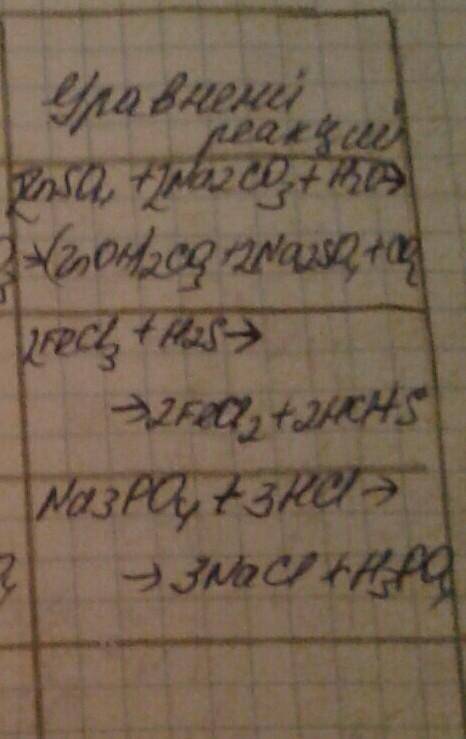 Уравнени
реакций
2ZnSO4 + 2Na2CO3 + H2O →
→ (ZnOH)2CO3 + 2Na2SO4 + CO2
2FeCl3 + H2S →
→ 2FeCl2 + 2HCl + S
Na3PO4 + 3HCl →
→ 3NaCl + H3PO4